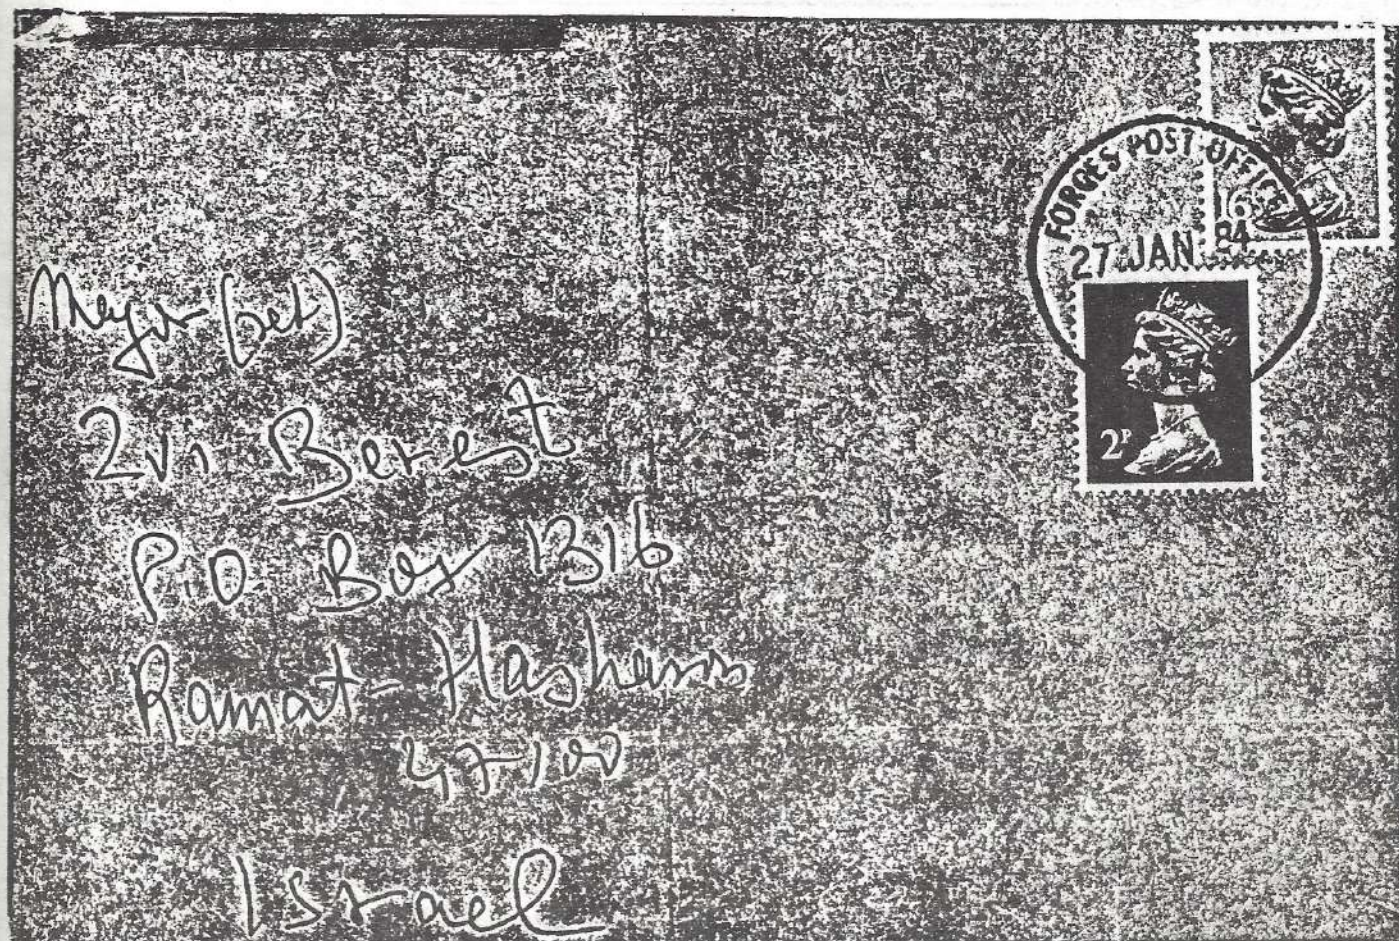 FORCES POST OFFICE
16
27 JAN 84
2P
Major (ret)
Zvi Berest
P.O Box 1316
Ramat-Hasharon
47100
Israel